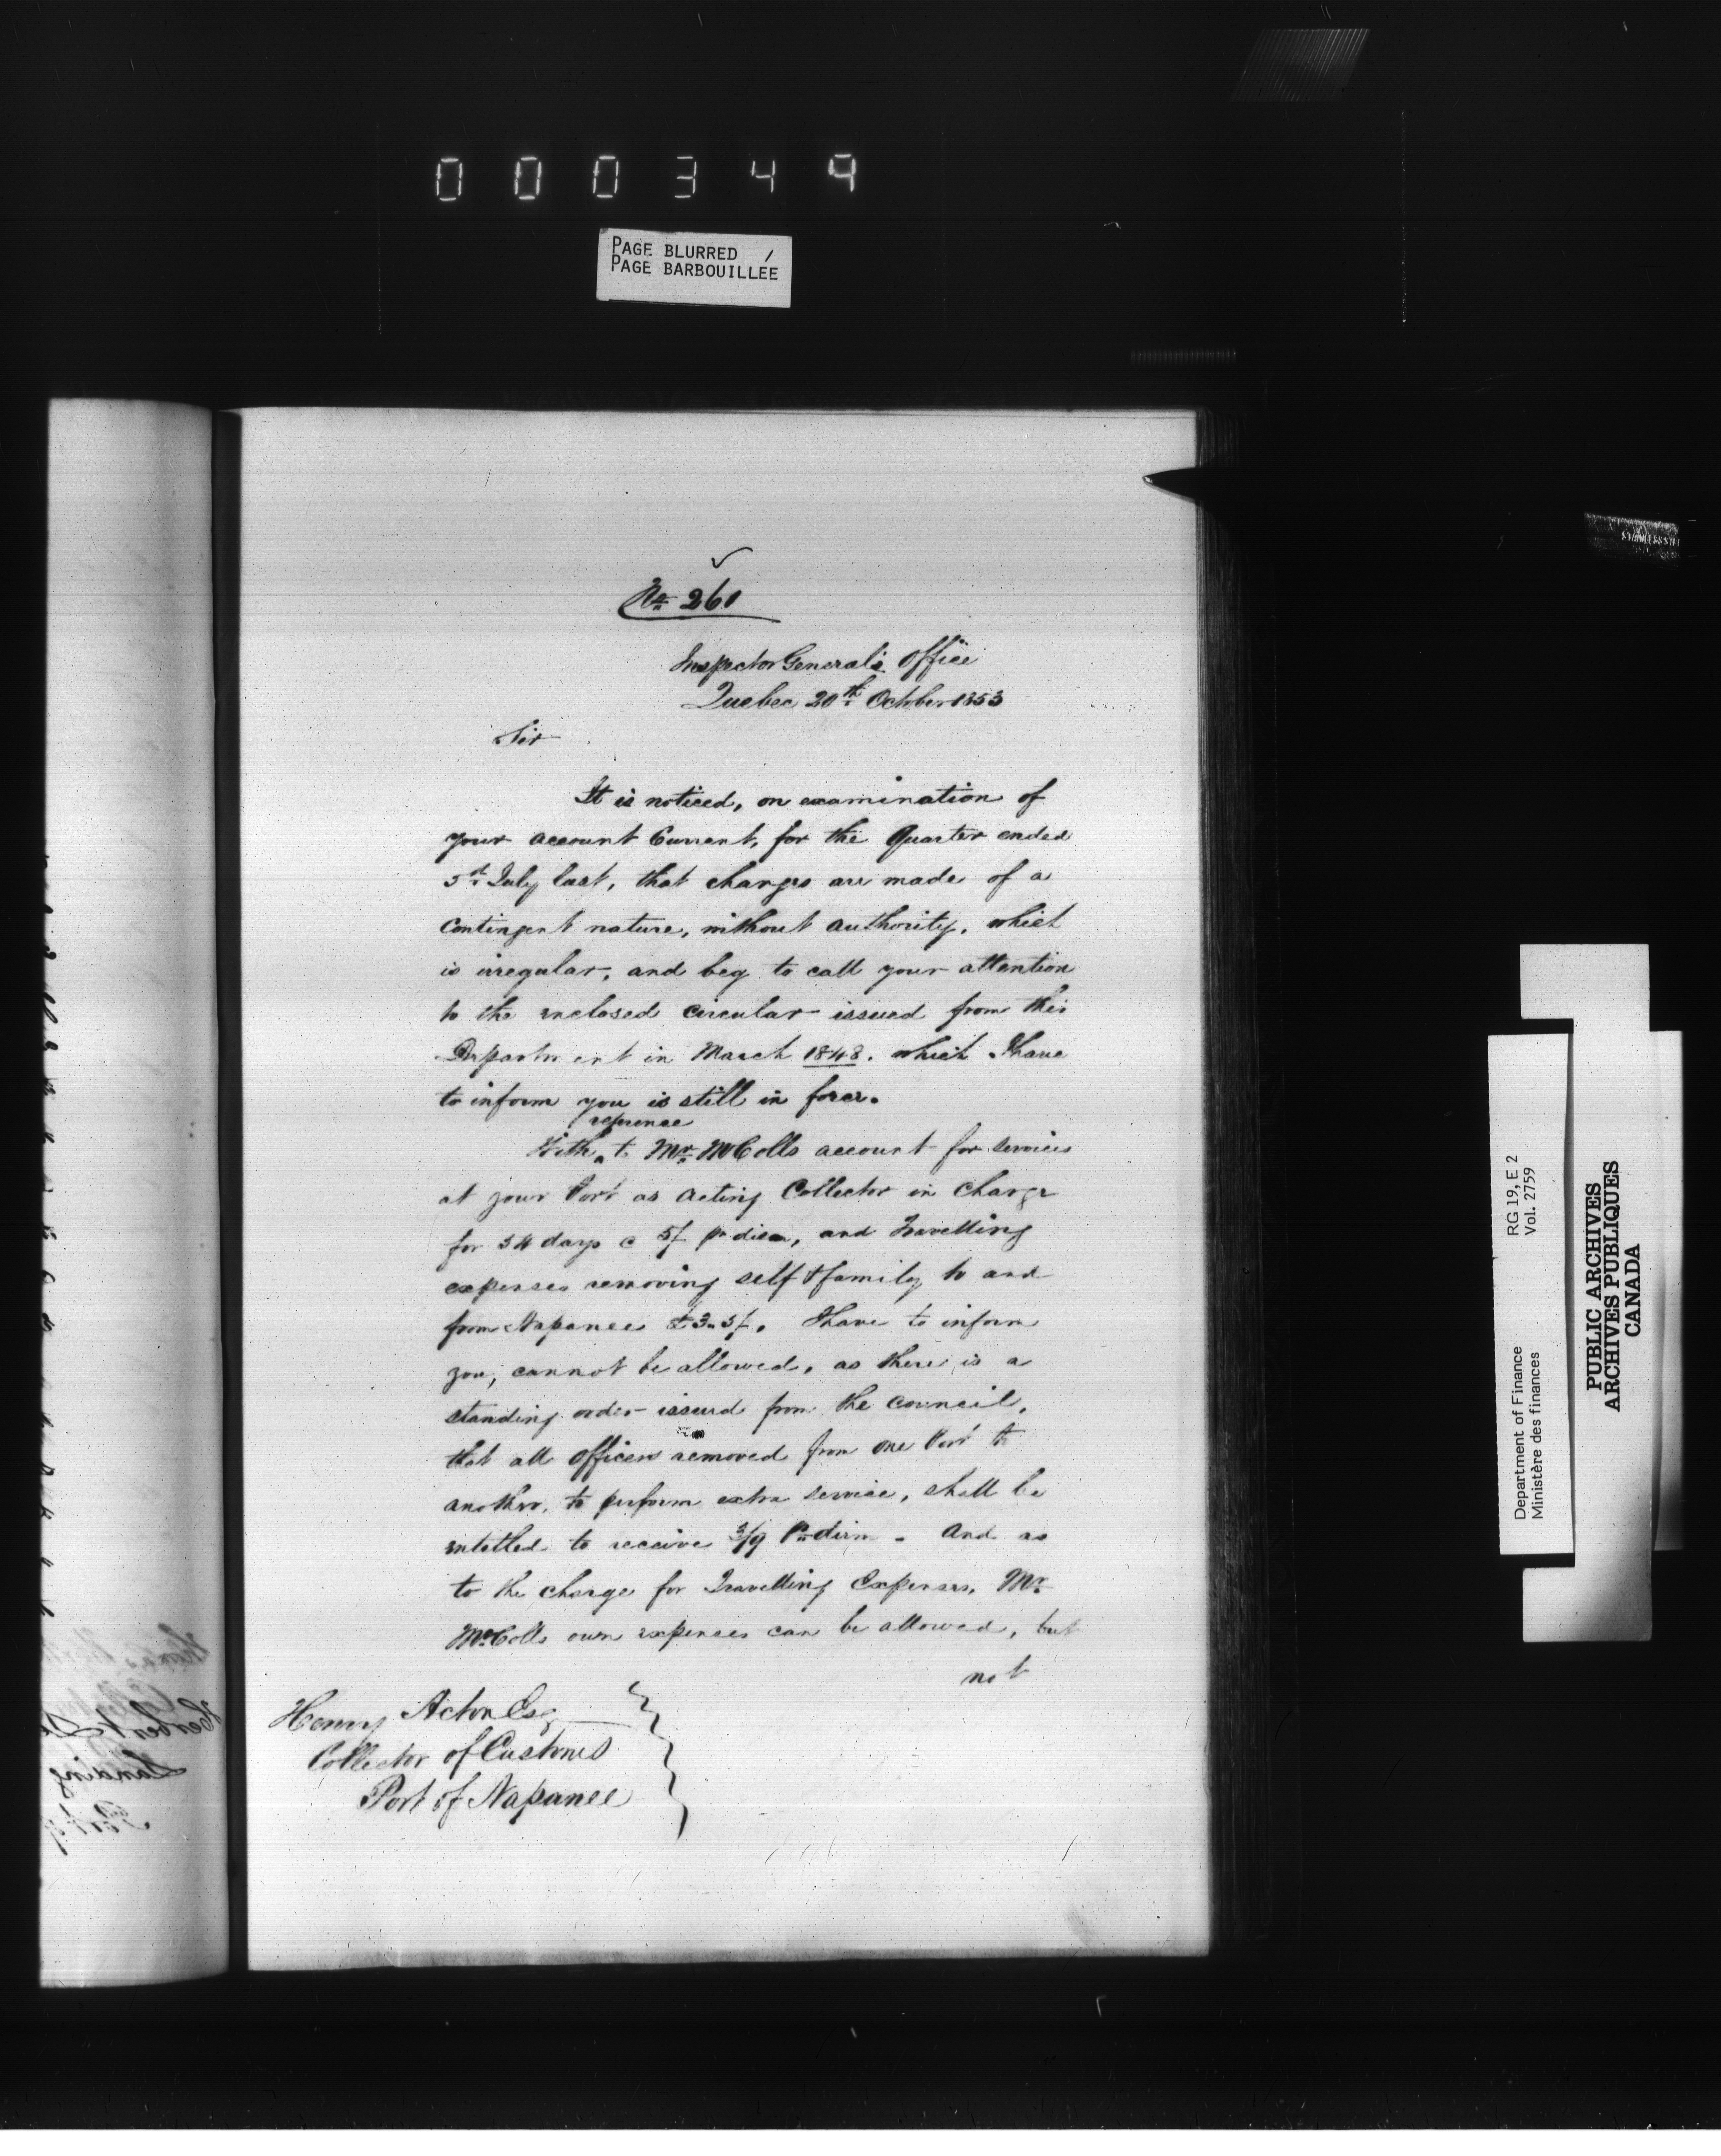 000349
PAGE BLURRED /
PAGE BARBOUILLEE
No 260
Inspector General's Office
Quebec 20th October 1853
Sir
It is noticed, on examination of
your account Current, for the Quarter ended
5th July last, that charges are made of a
Contingent nature, without authority, which
is irregular, and beg to call your attention
to the enclosed circular issued from this
Department in March 1848. which I have
to inform you is still in force.
reference
With ‸ to Mr. McColls account for services
at your Port as Acting Collector in Charge
for 34 days @ 5/ pr diem, and Travelling
expenses removing self & family to and
from Napanee £3..5/. I have to inform
you, cannot be allowed, as there is a
standing order issued from the council,
that all Officers removed from one Port to
another, to perform extra service, shall be
entitled to receive 3/9 Pr diem. And as
to the charge for Travelling Expenses, Mr.
McColls own expenses can be allowed, but
not
Henry Acton Esq
Collector of Customs
Port of Napanee
Department of Finance RG 19, E 2
Ministère des finances Vol. 2759
PUBLIC ARCHIVES
ARCHIVES PUBLIQUES
CANADA